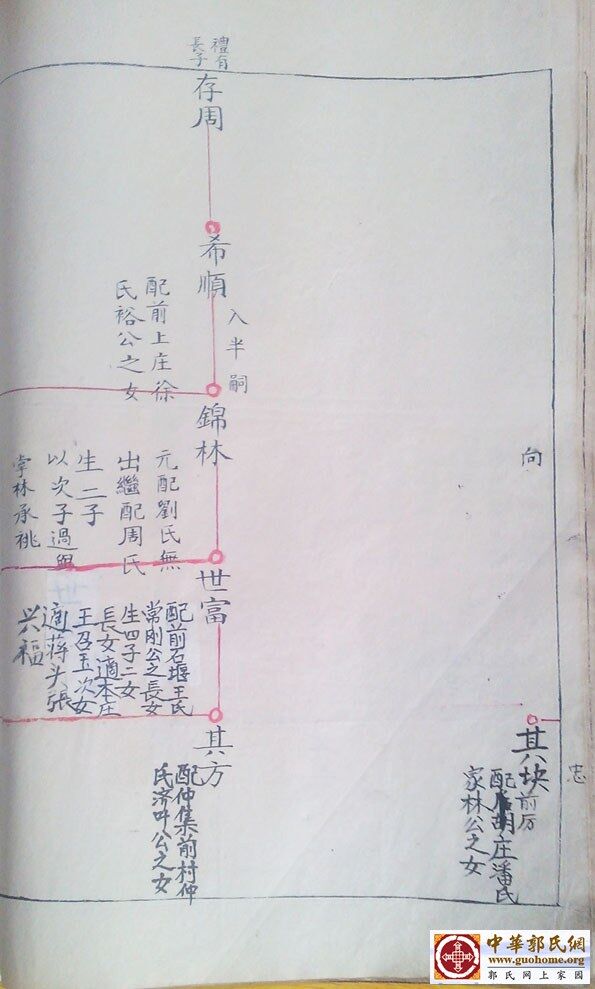 禮有
長子
存周
希順
配前上庄徐
氏裕公之女
入半嗣
錦林
元配劉氏無
出繼配周氏
生二子
以次子過與
掌林承祧
世富
配前石堰王氏
常刚公之長女
生四子二女
長女適本庄
王召玉次女
適蒋头張
兴福
其方
配仲集前村仲
氏济叶公之女
向
志
其块
前厉
配胡庄潘氏
家林公之女
中華郭氏網
www.guohome.org
郭氏网上家园